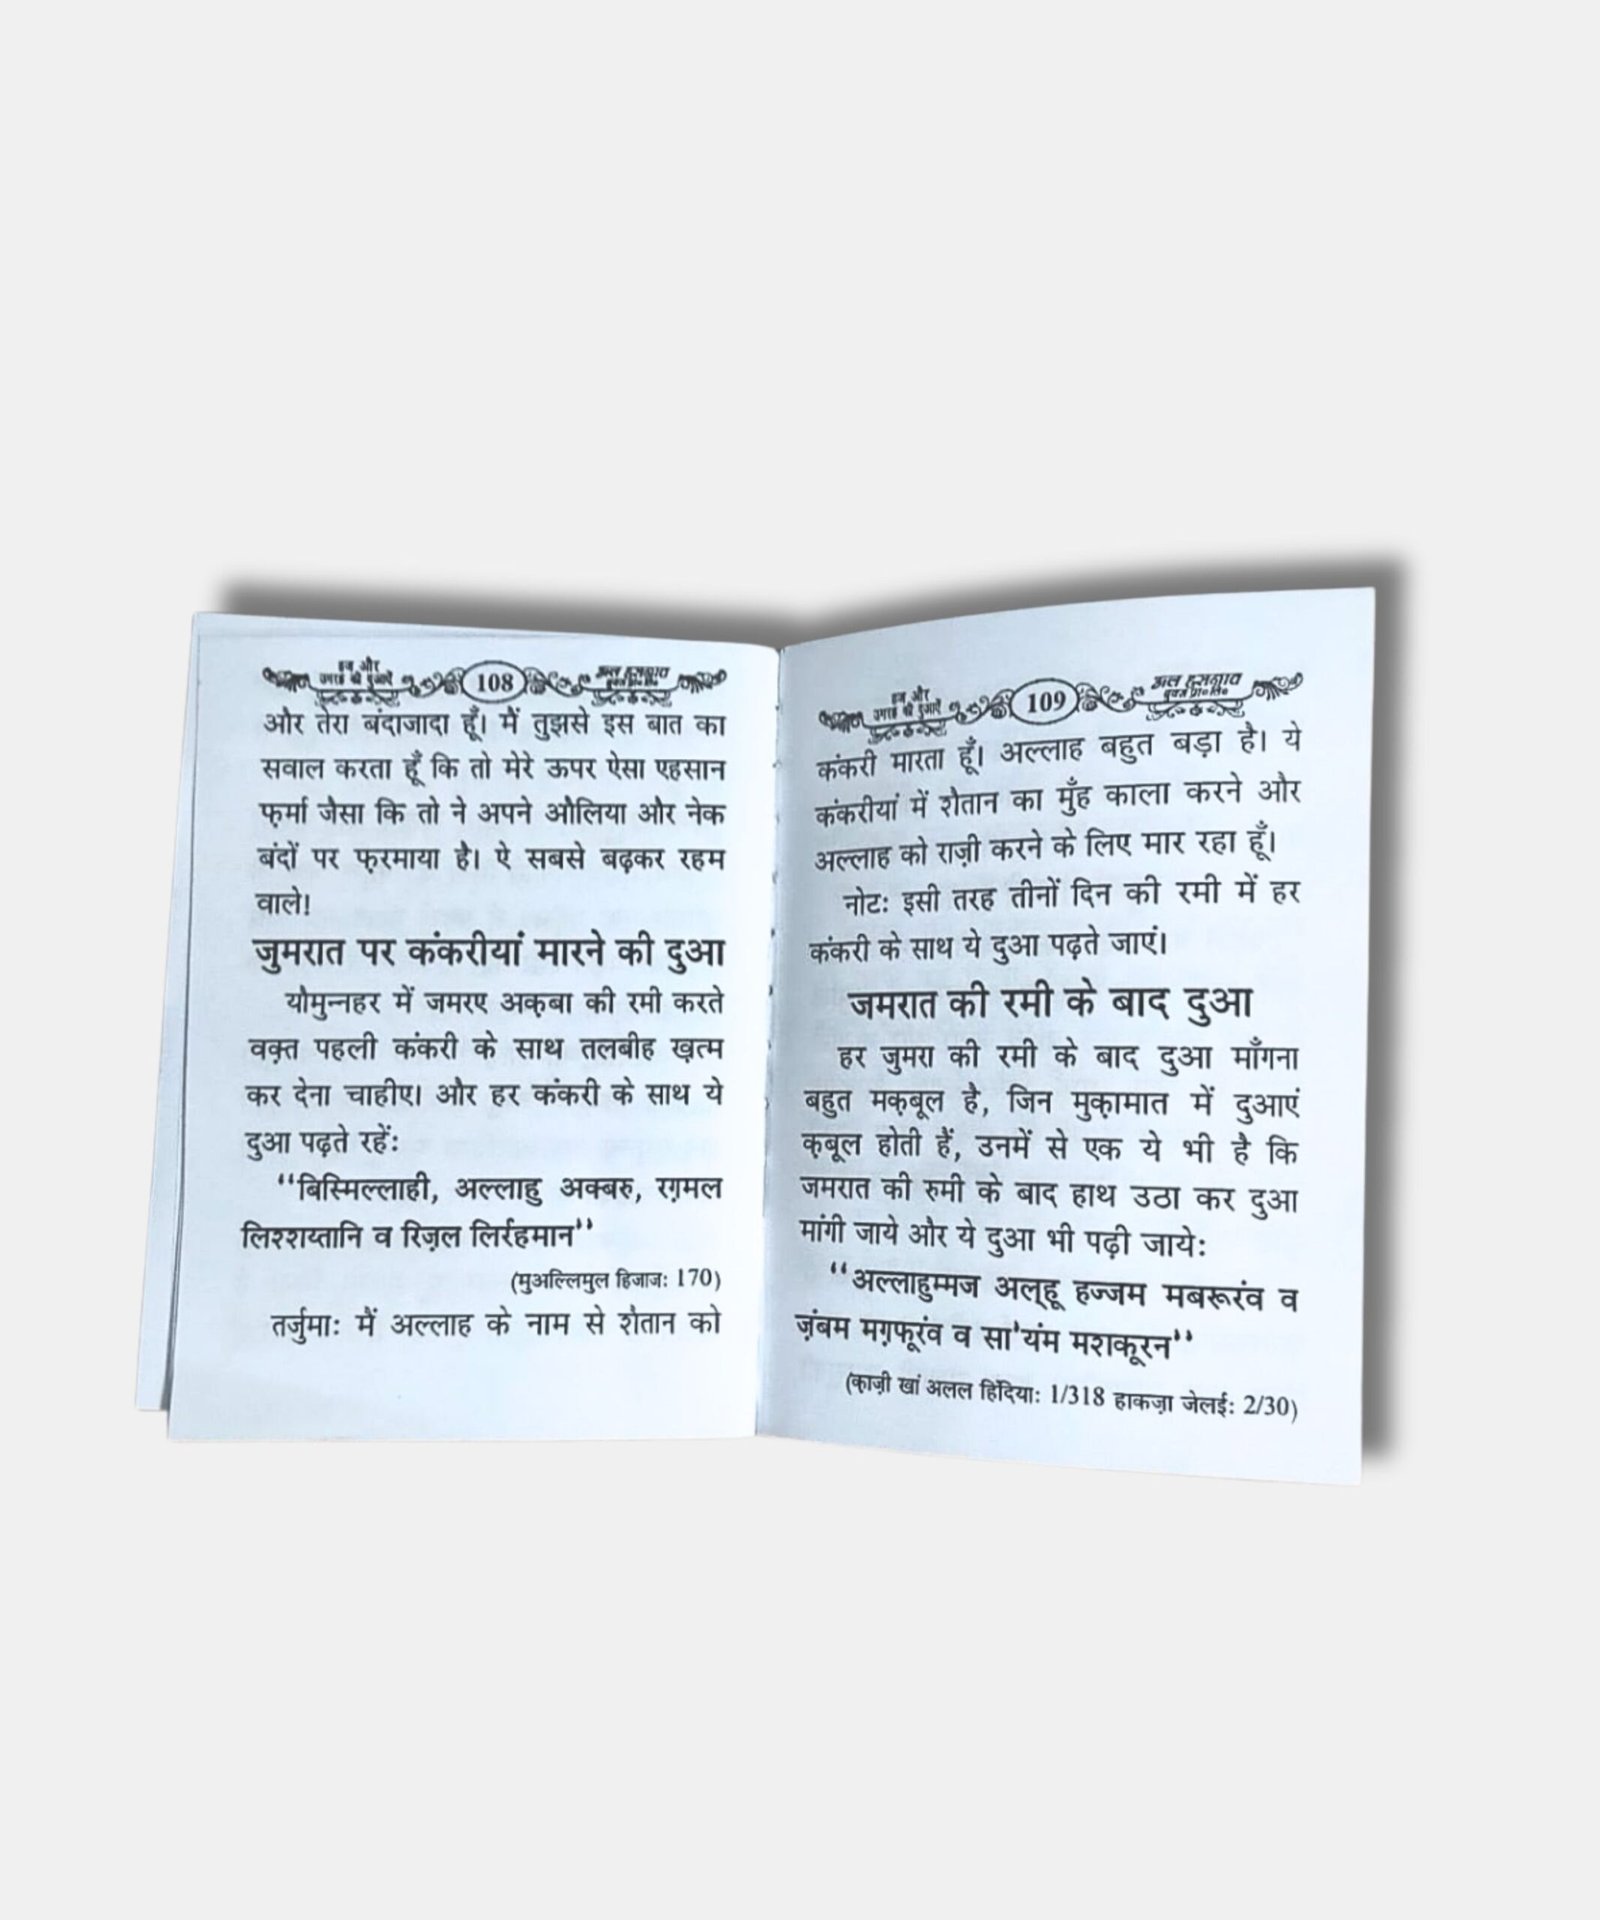 हज और
उमराह की दुआएँ
108
अल हसनात
बुक्स प्रा॰ लि॰
और तेरा बंदाजादा हूँ। मैं तुझसे इस बात का
सवाल करता हूँ कि तो मेरे ऊपर ऐसा एहसान
फ़र्मा जैसा कि तो ने अपने औलिया और नेक
बंदों पर फ़रमाया है। ऐ सबसे बढ़कर रहम
वाले!
जुमरात पर कंकरीयां मारने की दुआ
यौमुन्नहर में जमरए अक़बा की रमी करते
वक़्त पहली कंकरी के साथ तलबीह ख़त्म
कर देना चाहीए। और हर कंकरी के साथ ये
दुआ पढ़ते रहें:
‘‘बिस्मिल्लाही, अल्लाहु अक्बरु, रग़मल
लिश्शय्तानि व रिज़ल लिर्रहमान’’
(मुअल्लिमुल हिजाज: 170)
तर्जुमा: मैं अल्लाह के नाम से शैतान को
हज और
उमराह की दुआएँ
109
अल हसनात
बुक्स प्रा॰ लि॰
कंकरी मारता हूँ। अल्लाह बहुत बड़ा है। ये
कंकरीयां में शैतान का मुँह काला करने और
अल्लाह को राज़ी करने के लिए मार रहा हूँ।
नोट: इसी तरह तीनों दिन की रमी में हर
कंकरी के साथ ये दुआ पढ़ते जाएं।
जमरात की रमी के बाद दुआ
हर जुमरा की रमी के बाद दुआ माँगना
बहुत मक़बूल है, जिन मुक़ामात में दुआएं
क़बूल होती हैं, उनमें से एक ये भी है कि
जमरात की रुमी के बाद हाथ उठा कर दुआ
मांगी जाये और ये दुआ भी पढ़ी जाये:
‘‘अल्लाहुम्मज अल्हू हज्जम मबरूरंव व
ज़ंबम मग़फूरंव व सा'यंम मशकूरन’’
(क़ाज़ी खां अलल हिंदिया: 1/318 हाकज़ा जेलई: 2/30)